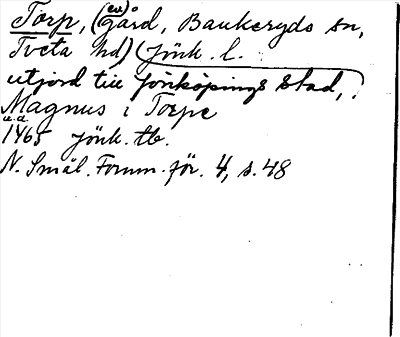 Torp, (en) gård, Bankeryds sn,
Tveta hd) (Jönk. l.
utjord till Jönköpings stad,
Magnus i Torpe
u.a.
1465 Jönk. tb.
N. Smål. Fornm. för. 4, s. 48